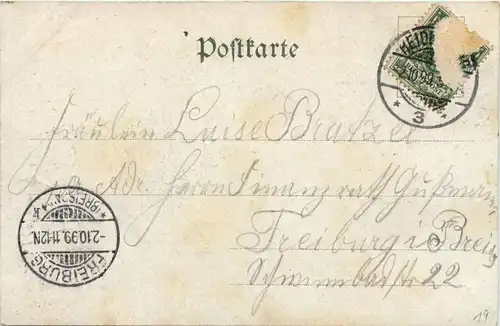 Postkarte
HEIDE
2.10.99.
3
Fräulein Luise Bratzel
p Adr. Herrn Finanzrath Gußmann
Freiburg i Breisg
Schwimmbadstr 22
FREIBURG
-2.10.99.11-12N.
*(BREISGAU)*
k
19